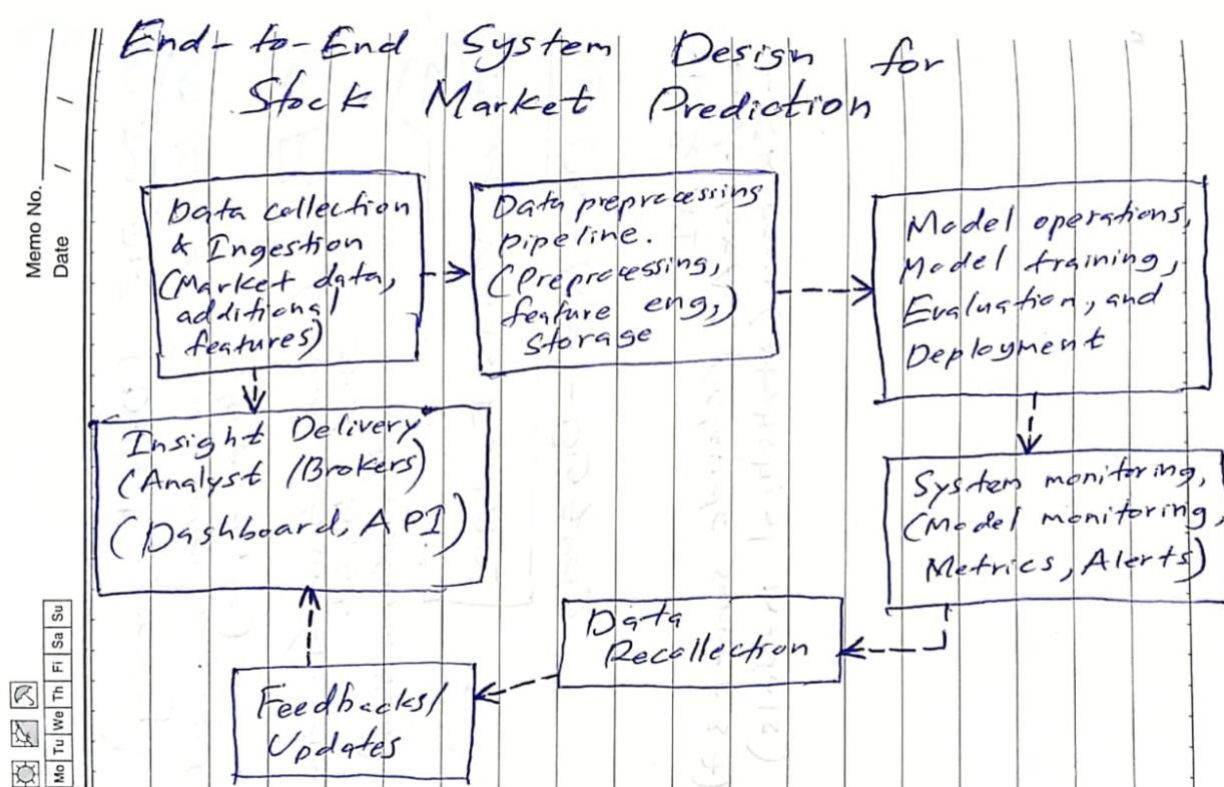 End-to-End System Design for
Stock Market Prediction
Memo No.
Date / /
Data collection
& Ingestion
(Market data,
additional
features)
Data preprocessing
pipeline.
(Preprocessing,
feature eng,)
Storage
Model operations,
Model training,
Evaluation, and
Deployment
Insight Delivery
(Analyst /Brokers)
(Dashboard, API)
System monitoring,
(Model monitoring,
Metrics, Alerts)
Data
Recollection
Feedbacks/
Updates
Mo Tu We Th Fi Sa Su